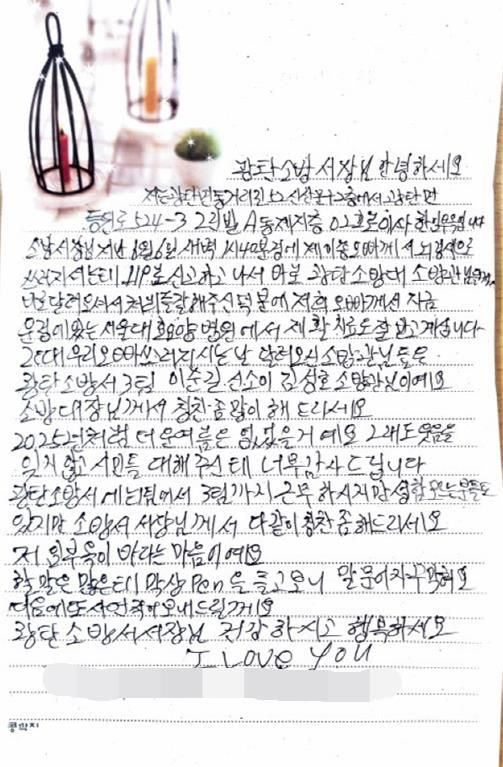 광탄소방서장님 안녕하세요
저는 광탄면 동거리
등원로 524-3 2차빌 A동 제지층 02호로 이사 한
소방서장님 지난 8월 6일 새벽 1시40분경에 제 이종오빠께서 뇌경색으로
쓰러지셨는데 119로 신고하고 나서 바로 광탄소방대 소방관님들께서
달려오셔서 처치를 잘해주신 덕분에 저희 오빠께서 지금
운정에 있는 서울대효요양병원에서 재활치료도 잘 받고 계십니다
그런데 우리오빠 쓰러지시는 날 달려오신 소방관님들은
광탄소방서 3팀 이순길 선소이 김성호 소방관님이에요
소방대장님께서 칭찬 좀 많이 해 드리세요
2025년처럼 더운여름은 없었을거예요 그래도 웃음을
잊지 않고 시민들 대해주신데 너무 감사드립니다
광탄소방서에 1팀에서 3팀까지 근무하시지만 성함 모르는분들도
있지만 소방서 서장님께서 다같이 칭찬좀해드리세요
저 원부욱이 바라는 마음이에요
할 말은 많은데 막상 Pen을 들고보니 말문이 자꾸막혀요
다음에 또 사연 적어보내드릴게요
광탄소방서서장님 건강하시고 행복하세요
I LOVE YOU
콩딱지